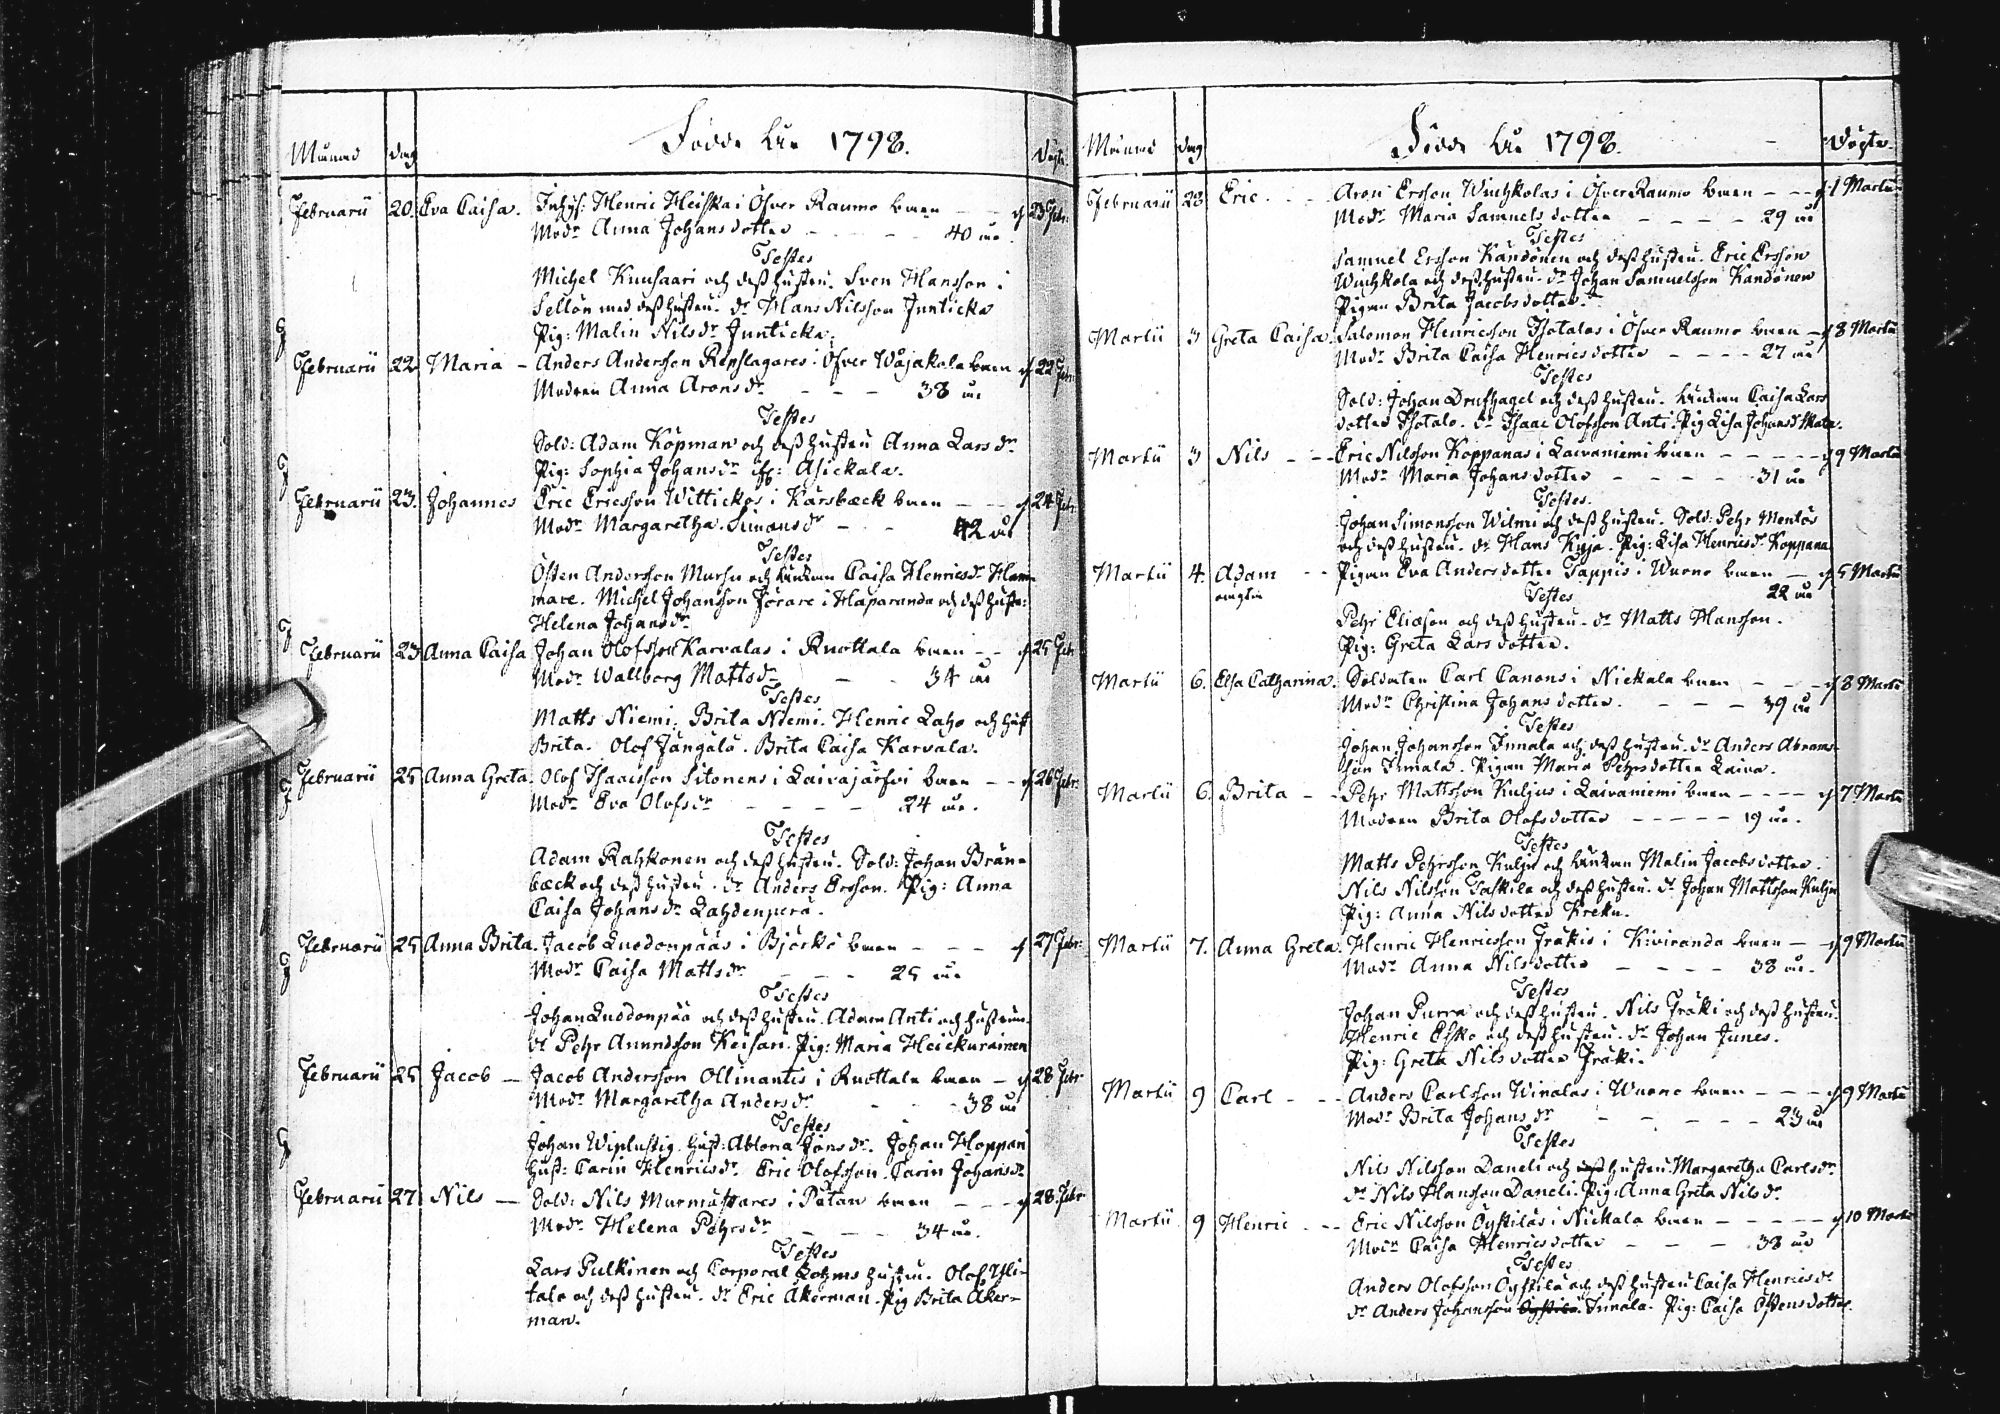 Månad dag Födde År 1798. Döpte.
Februarii 20. Eva Caisa. Inhys: Henric Heiska i Öfver Raumo byen - - d 23 Febr:
Modr Anna Johansdotter - - - - - 40 år.
Testes
Michel Kuusaari och dess hustru. Sven Hansson i
Sellön med dess hustru. dr Hans Nilsson Junticka
Pig: Malin Nilsdr Junticka.
Februarii 22. Maria - Anders Andersson Repslagares i Öfver Wojakala byen d 22 Febr:
Modren Anna Aronsdr - - - 38 år
Testes
Sold: Adam Köpman och dess hustru Anna Larsdr
Pig: Sophia Johansdr Asickala.
Februarii 23. Johannes Eric Ericsson Wittickos i Karsbäck byen - - d 24 Febr
Modr Margaretha Simonsdr - - 42 år
Testes
Östen Andersson Mursu och Caisa Henricsdr Ham-
mare. Michel Johansson Jörare i Haparanda och dess hustr:
Helena Johansdr
Februarii 23 Anna Caisa Johan Olofsson Karvalas i Ruottala byen - - d 25 Febr
Modr Wallborg Mattsdr - - 34 år
Testes
Matts Niemi. Brita Niemi. Henric Laho och hust
Brita. Olof Jängälä. Brita Caisa Karvala.
Februarii 25 Anna Greta Olof Isaacsson Sitonens i Laivajärfvi byen - - d 26 Febr:
Modr Eva Olofsdr - - - - - 24 år.
Testes
Adam Rahkonen och dess hustru. Sold: Johan Brän-
bäck och dess hustru. dr Anders Ersson. Pig: Anna
Caisa Johansdr Lahdenperä.
Februarii 25 Anna Brita. Jacob Luodonpääs i Björkö byen - - - d 27 Febr:
Modr Caisa Mattsdr - - - 25 år
Testes
Johan Luodonpää och dess hustru. Adam Anti och hustrun.
dr Pehr Anundsson Keisari. Pig: Maria Heickurainen
Februarii 25 Jacob - Jacob Andersson Ollinantis i Ruottala byen - d 28 Febr
Modr Margaretha Andersdr - - - 38 år
Testes
Johan Wiplustig. hust: Ablona Jönsdr. Johan Hoppari
hust: Carin Henricsdr. Eric Olofsson. Carin Johansdr
Februarii 27. Nils - Sold: Nils Murmästares i Putan byen - - - d 28 Febr
Modr Helena Pehrsdr - - - - 34 år.
Testes
Lars Pulkinen och Corporal Lohms hustru. Olof Yli-
talo och dess hustru. dr Eric Åkerman. Pig Brita Åker-
man.
Månad dag Födde År 1798. Döpte.
Februarii 28 Eric - - Aron Ersson Winhkolas i Öfver Raumo byen - - - d 1 Martii
Modr Maria Samuelsdotter - - - - - 29 år
Testes
Samuel Ersson Kandönen och dess hustru. Eric Ersson
Winhkola och dess hustru. dr Johan Samuelsson Kandönen
Pigan Brita Jacobsdotter.
Martii 3 Greta Caisa. Salomon Henricsson Isotalos i Öfver Raumo byen - d 8 Martii
Modr Brita Caisa Henricsdotter - - - - 27 år
Testes
Sold: Johan Drufhagel och dess hustru. Caisa Lars
dotter Isotalo. dr Isaac Olofsson Anti. Pig Lisa Johansd Skata.
Martii 3 Nils - - Eric Nilsson Koppanas i Laivaniemi byen - - - - - d 9 Martii
Modr Maria Johansdotter - - - - - 31 år
Testes.
Johan Simonsson Wilmi och dess hustru. Sold: Pehr Mentös
och dess hustru. dr Hans Kuja. Pig: Lisa Henricsdr Koppana
Martii 4. Adam - - Pigan Eva Andersdotter Tappis i Wuono byen - d 5 Martii
oägta Testes 22 år
Pehr Eliasson och dess hustru. dr Matts Hansson.
Pig: Greta Larsdotter.
Martii 6. Elsa Catharina. Soldaten Carl Canons i Nickala byen - - - d 8 Martii
Modr Christina Johansdotter. - - - 39 år
Testes
Johan Johansson Innala och dess hustru. dr Anders Abrams-
son Innala. Pigan Maria Pehrsdotter Laiva.
Martii 6. Brita - - Pehr Mattsson Kuljus i Laivaniemi byen - - - - d 7 Martii
Modren Brita Olofsdotter - - - - - 19 år.
Testes
Matts Pehrsson Kulju och Malin Jacobsdotter.
Nils Nilsson Taskila och dess hustru. dr Johan Mattsson Kulju
Pig: Anna Nilsdotter Kreku.
Martii 7. Anna Greta. Henric Henricsson Träkis i Kiviranda byen - - d 9 Martii
Modr Anna Nilsdotter - - - - 38 år.
Testes
Johan Purra och dess hustru. Nils Träki och dess hustru.
Henric Esko och dess hustru. dr Johan Junes.
Pig: Greta Nilsdotter Träki.
Martii 9 Carl - - - Anders Carlsson Winalas i Wuono byen - - - d 9 Martii
Modr Brita Johansdr - - - - - 23 år
Testes
Nils Nilsson Daneli och hustru. Margaretha Carlsdr.
dr Nils Hansson Daneli. Pig: Anna Greta Nilsdr.
Martii 9 Henric - - Eric Nilsson Öystiläs i Nickala byen - - - - - d 10 Martii
Modr Caisa Henricsdotter - - - 38 år
Testes
Anders Olofsson Öystilä och dess hustru Caisa Henricsdr
dr Anders Johansson Öystilä. Innala. Pig: Caisa Östensdotter.